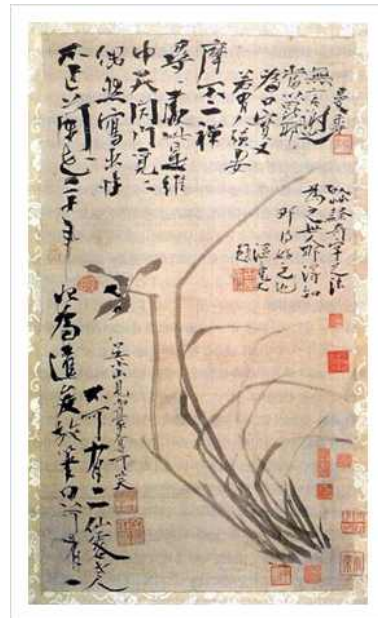 不作蘭花二十年
偶然寫出性
中天閉門覓覓
尋尋處此是維
摩不二禪
若有人强要
爲口實又
當以毘耶
無言謝之
曼香
以草隸奇字之法
爲之世人那得知
那得好之也
漚竟又
題
始爲達俊放筆只可有一
不可有二仙客老人
吳小山見而豪奪可笑